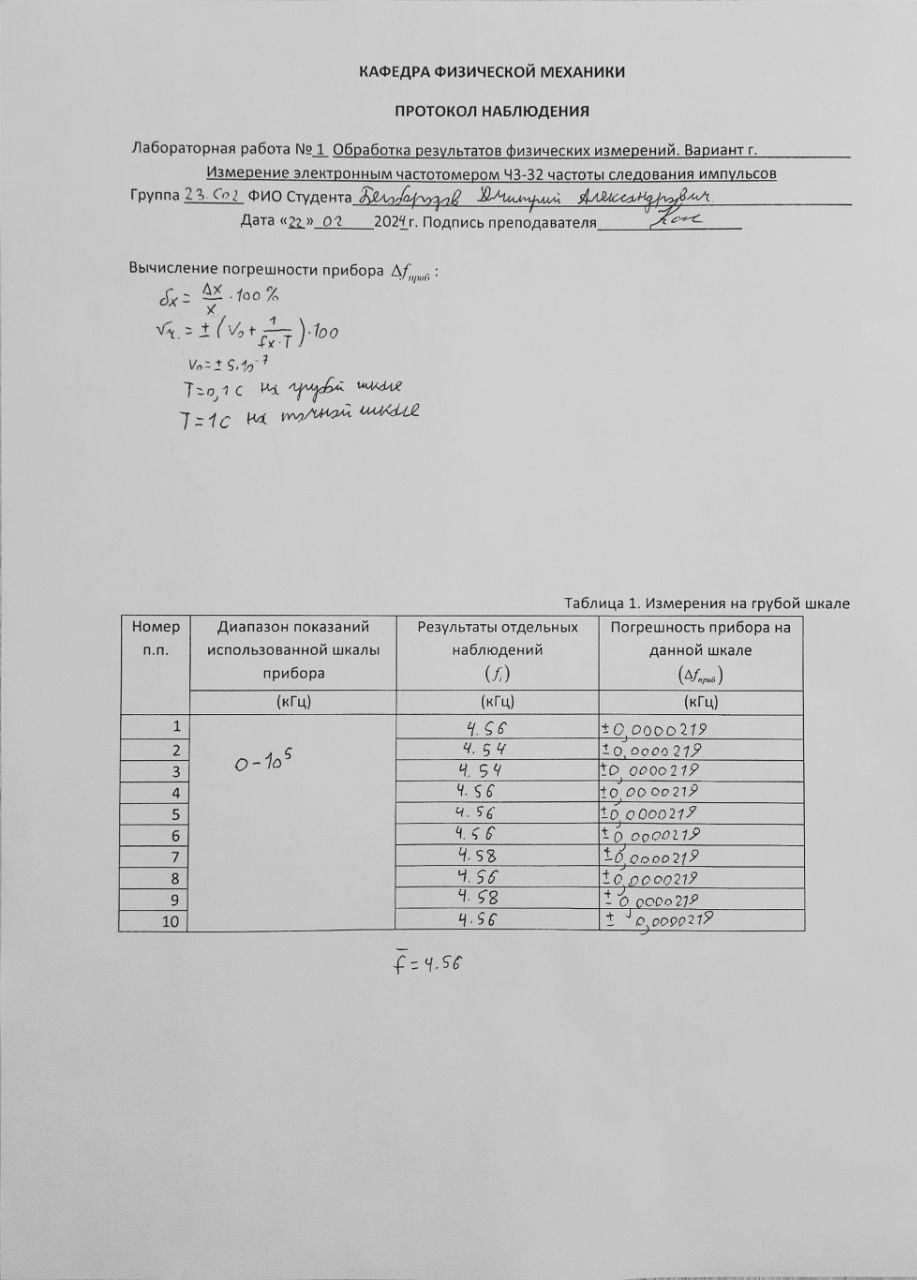 КАФЕДРА ФИЗИЧЕСКОЙ МЕХАНИКИ
ПРОТОКОЛ НАБЛЮДЕНИЯ
Лабораторная работа № 1 Обработка результатов физических измерений. Вариант г.
Измерение электронным частотомером ЧЗ-32 частоты следования импульсов
Группа 23.С02 ФИО Студента Дмитрий Александрович
Дата «22» 02 2024 г. Подпись преподавателя
Вычисление погрешности прибора Δfприб :
δx = Δx/x · 100 %
= ± (V₀ + 1/(fx·T)) · 100
V₀ = ± 5·10⁻⁷
T = 0,1 с на грубой шкале
T = 1 с на точной шкале
Таблица 1. Измерения на грубой шкале
Номер п.п. Диапазон показаний использованной шкалы прибора Результаты отдельных наблюдений (fi) Погрешность прибора на данной шкале (Δfприб)
(кГц) (кГц) (кГц)
1 0 - 10⁵ 4.56 ±0,0000219
2 4.54 ±0,0000219
3 4.54 ±0,0000219
4 4.56 ±0,0000219
5 4.56 ±0,0000219
6 4.56 ±0,0000219
7 4.58 ±0,0000219
8 4.56 ±0,0000219
9 4.58 ±0,0000219
10 4.56 ± 0,0000219
f̄ = 4.56